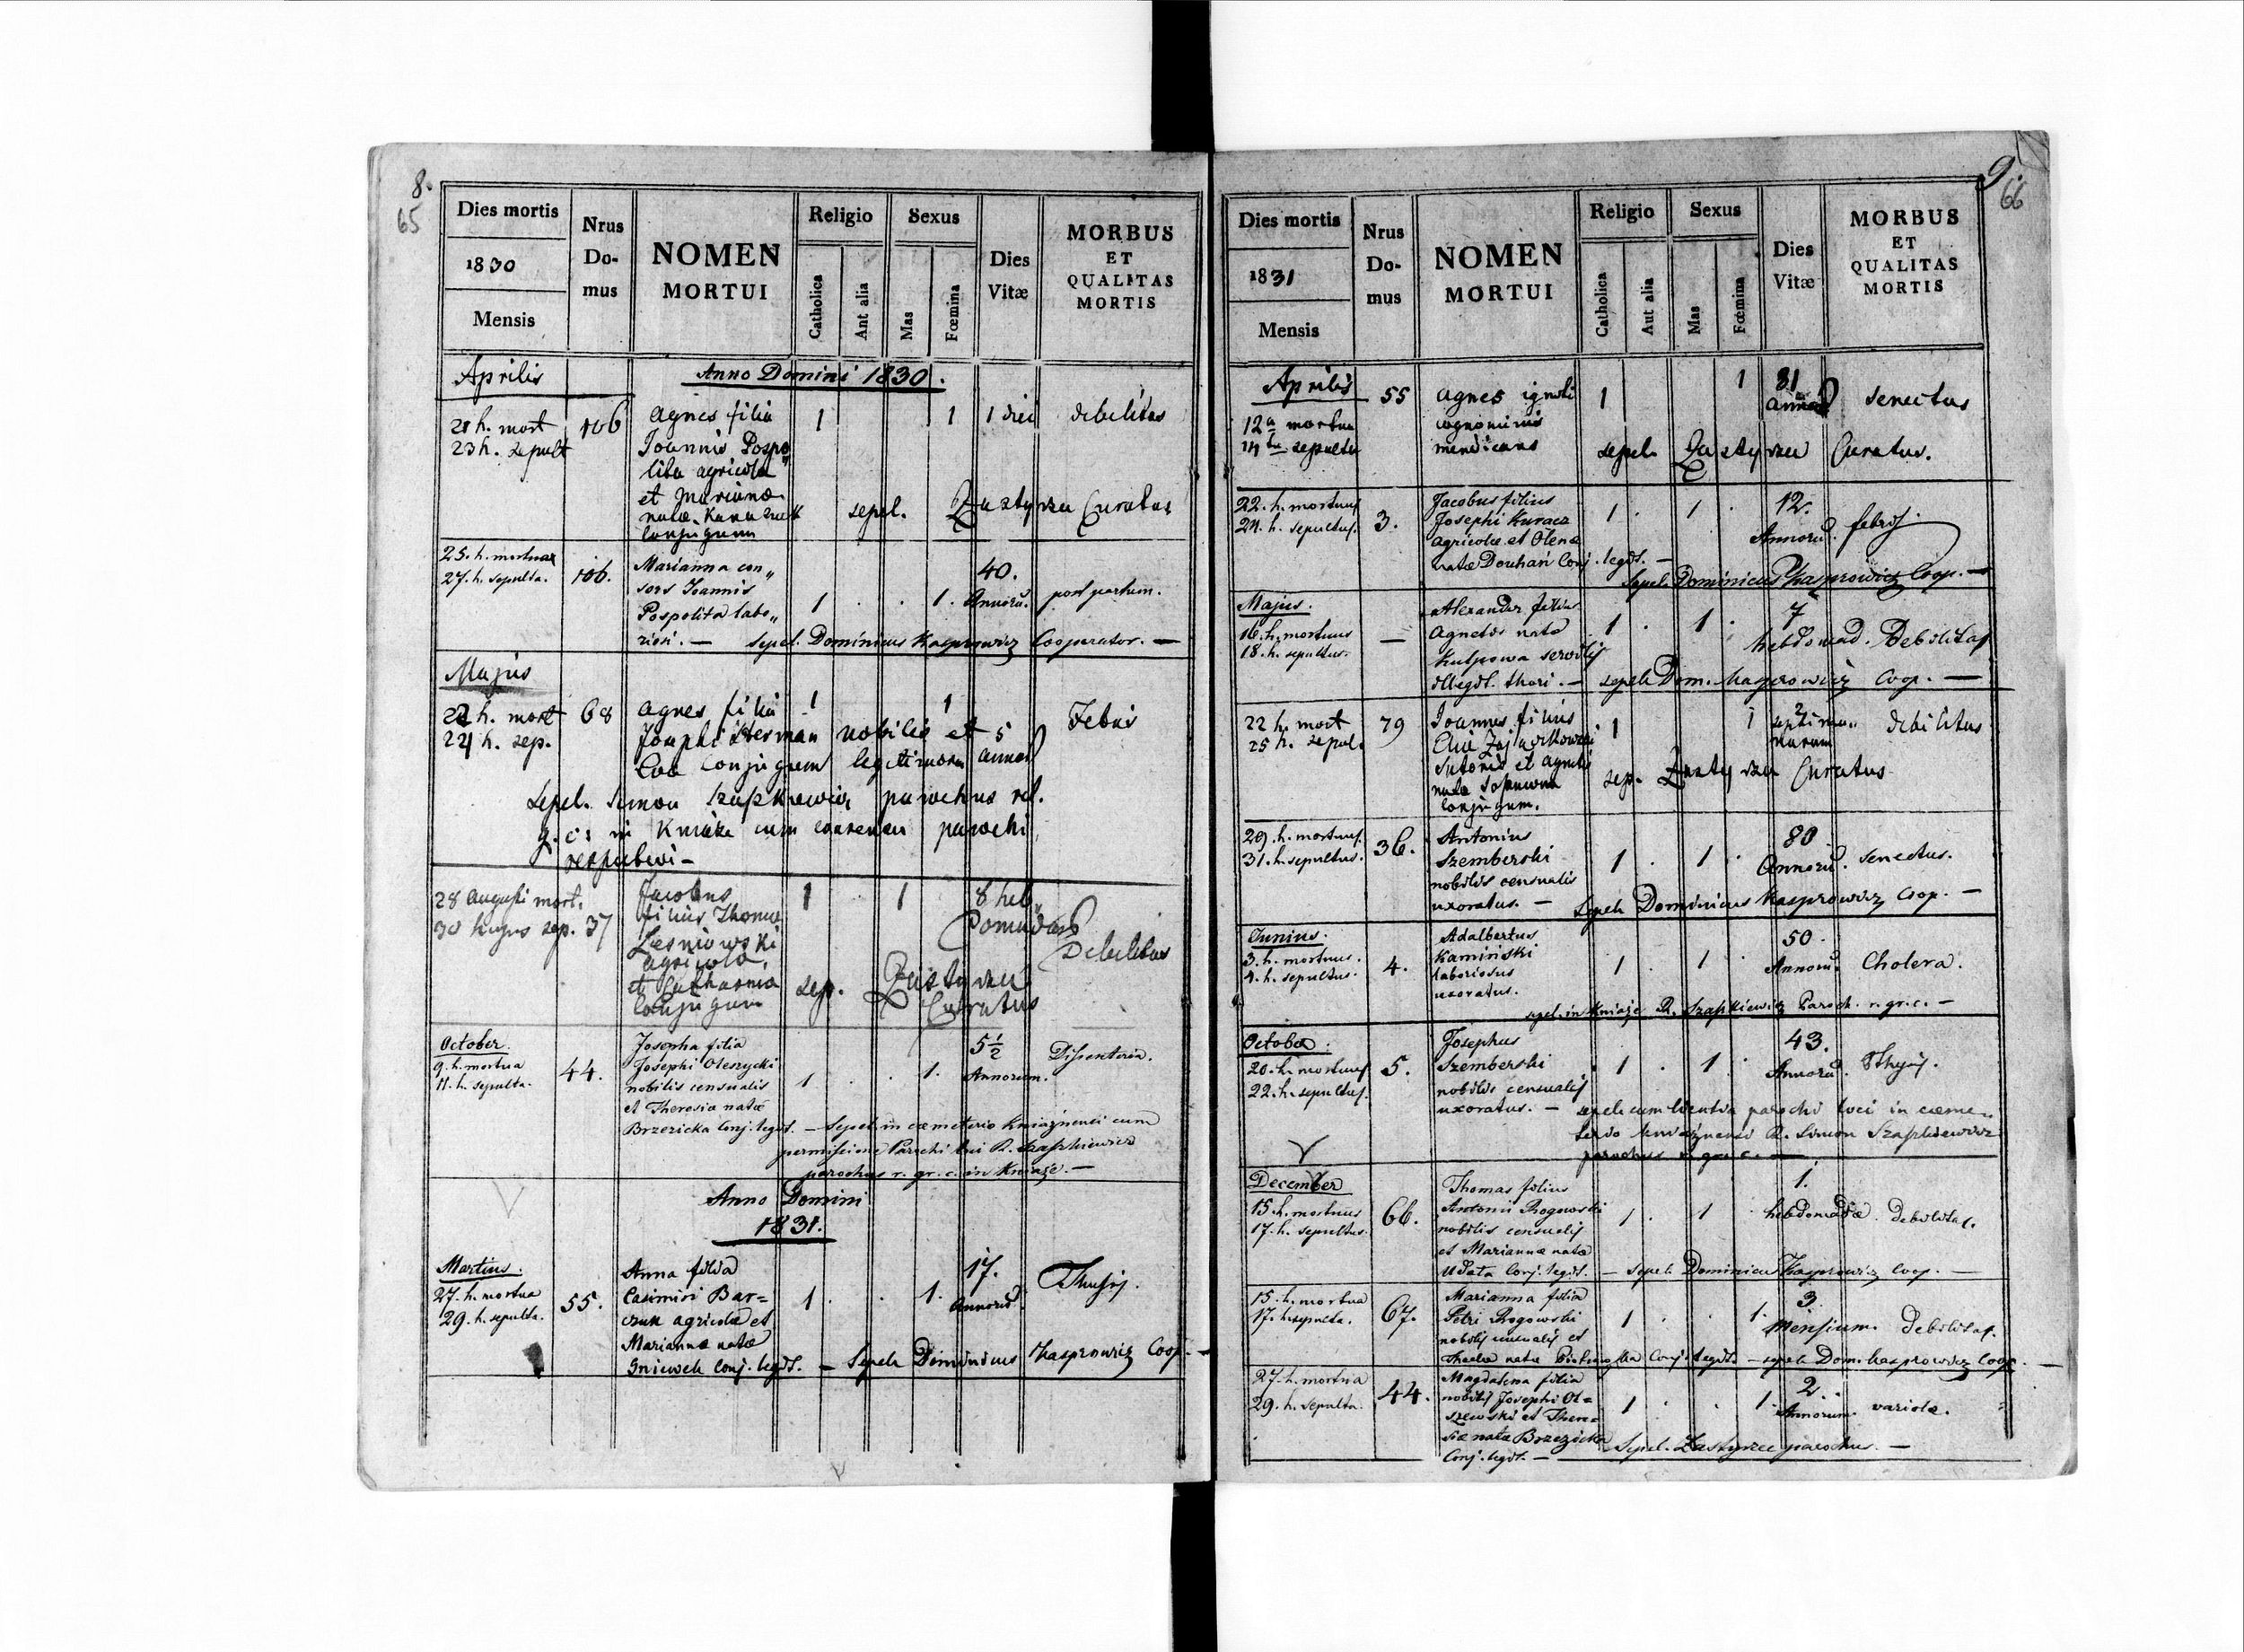 8.
65
Dies mortis
1830
Mensis
Nrus
Do-
mus
NOMEN
MORTUI
Religio
Catholica
Ant alia
Sexus
Mas
Fœmina
Dies
Vitæ
MORBUS
ET
QUALITAS
MORTIS
Aprilis
Anno Domini 1830.
21 h. mort 106 Agnes filia 1 1 1 diei debilitas
23 h. sepult Joannis Pospo„
lita agricola
et Mariana
nata
conjugum
sepel. Zastyrzu Curatus
25. h. mortua 106. Marianna con„ 40.
27. h. sepulta. sors Joannis 1 . . 1. Annorū. post partum.
Pospolita labo„
riosi. — sepel. Dominicus Kasprowicz Cooperator. —
Majus
22 h. mort 68 Agnes filia 1 1 Febris
24 h. sep. Josephi Herman nobilis et 5
Eva conjugum legitimorum annor
sepel. Simon Szapkiewicz parochus rit.
g. c: in Kniaże cum consensu parochi
respectivi –
28 Augusti mort. Jacobus 1 1 8 heb„
30 hujus sep. 37 filius Thomæ domadas
Lesniowski Debilitas
agricola,
et Catharina
conjugum
sep. Zastyrzu
Curatus
October.
9. h. mortua 44. Josepha filia 5½ Dissenteria.
11. h. sepulta. Josephi Olszycki 1 . . 1. Annorum.
nobilis censualis
et Theresia natæ
Brzezicka Conj. legit. — sepel. in cæmeterio Kniaznensi cum
permissione Parochi loci R. Szapkiewicz
parochus r. gr. c. in Kniaże. —
Anno Domini
1831.
Martius.
27. h. mortua 55. Anna filia 17. Thysis
29. h. sepulta. Casimiri Bar= 1 . . 1. Annorū.
czuk agricolæ et
Mariannæ natæ
Gniewek Conj. legit. — Sepel. Dominicus Kasprowicz Coop. —
9.
66
Dies mortis
1831
Mensis
Nrus
Do-
mus
NOMEN
MORTUI
Religio
Catholica
Aut alia
Sexus
Mas
Fœmina
Dies
Vitæ
MORBUS
ET
QUALITAS
MORTIS
Aprilis 55 Agnes ignoti 1 1 81 senectus
12a mortua cognominis annor
14ta sepulta mendicans sepel. Zastyrzu Curatus.
22. h. mortuus 3. Jacobus filius 12.
24. h. sepultus. Josephi Kuracz 1 . 1 . Annorū. febris
agricolæ et Olena
natæ Douhań Conj. legit. —
Sepel. Dominicus Kasprowicz Coop. —
Majus.
16. h. mortuus — Alexander filius 7
18. h. sepultus. Agnetis nata 1 . 1 . hebdomad. Debilitas
Kulpowa servilis
illegit. thori. — sepel. Dom. Kasprowicz Coop. —
22 h. mort 79 Joannes filius 1 1 2 debilitas
25 h. sepul. septima„
Sutoris et Agnetis narum
nata
conjugum. sep. Zastyrzu Curatus
29. h. mortuus. 36. Antonius 80
31. h. sepultus. Szemberski 1 . 1 . Annorū. senectus.
nobilis censualis
uxoratus. — Sepel. Dominicus Kasprowicz Coop. —
Junius.
3. h. mortuus. 4. Adalbertus 50.
4. h. sepultus. Kamiński 1 . 1 . Annorū. Cholera.
laboriosus
uxoratus.
sepel. in Kniaże R. Szapkiewicz Paroch. r. gr. c. —
October.
20. h. mortuus 5. Josephus 43.
22. h. sepultus. Szemberski 1 . 1 . Annorū. Thysis.
nobilis censualis
uxoratus. — sepel. cum licentia parochi loci in cæme„
terio Kniaznensi R. Simon Szapkiewicz
parochus r. gr. c. —
December
15. h. mortuus 66. Thomas filius 1.
17. h. sepultus. Antonii Rogowski 1 . 1 hebdomadæ. Debilitas.
nobilis censualis
et Mariannæ natæ
Conj. legit. — sepel. Dominicus Kasprowicz Coop. —
15. h. mortua 67. Marianna filia 3.
17. h. sepulta. Petri Rogowski 1 . . 1. Mensium. Debilitas.
nobilis censualis et
Thecla nata Conj. legit. — sepel. Dom. Kasprowicz Coop. —
27. h. mortua 44. Magdalena filia 2.
29. h. sepulta. nobilis Josephi Ol= 1 . . 1. Annorum. variolæ.
szewski et There=
siæ natæ Brzezicka
Conj. legit. — Sepel. Zastyrzec parochus. —